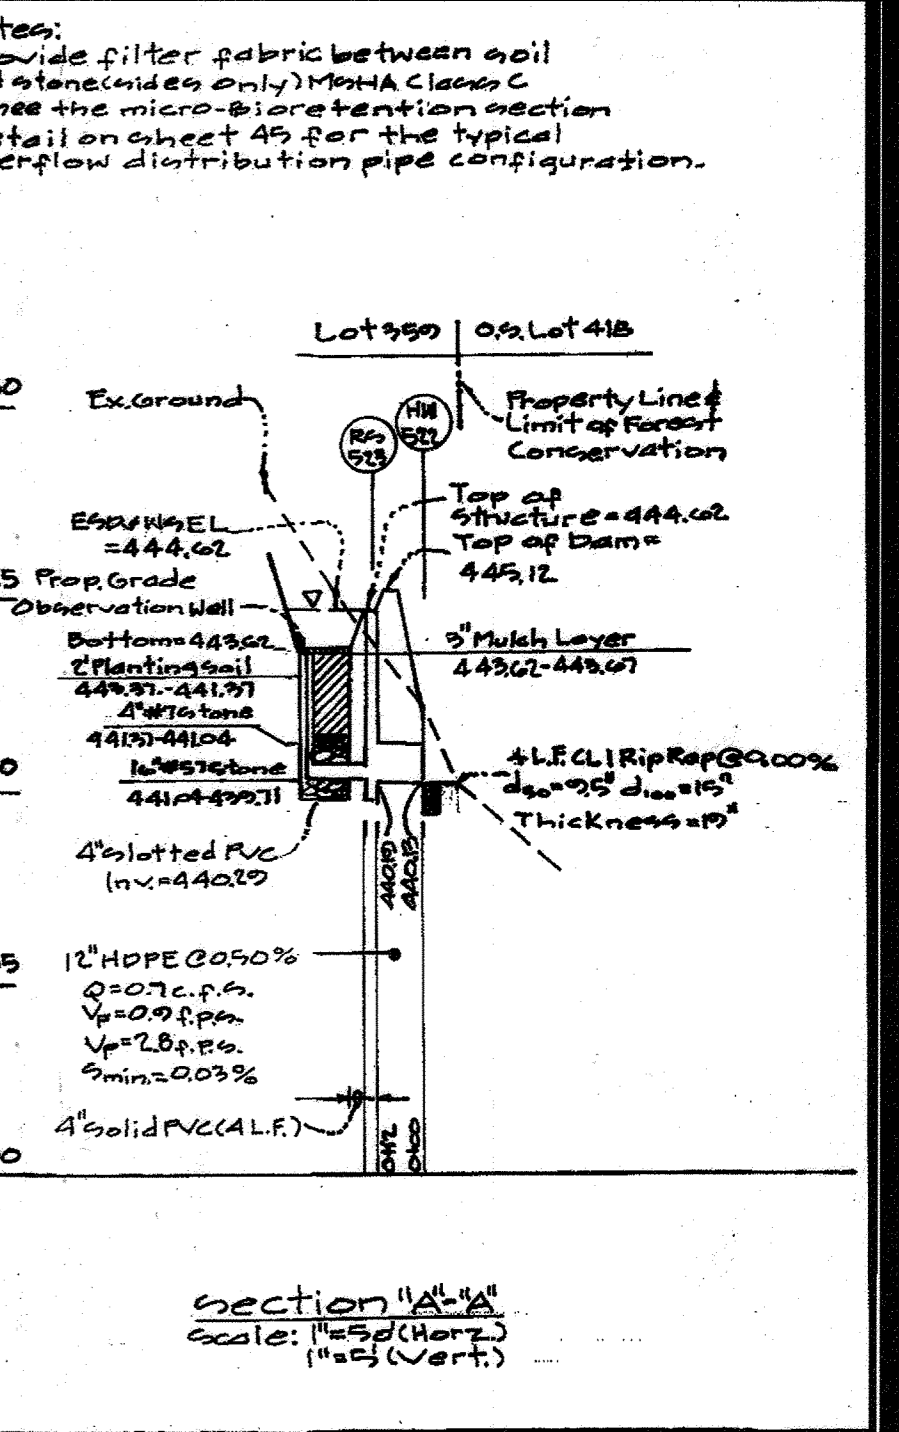 tes:
ovide filter fabric between soil
d stone (sides only) MSHA Class C
see the micro-Bioretention section
etail on sheet 45 for the typical
erflow distribution pipe configuration.
Lot 359
O.S. Lot 41B
0
Ex. Ground
Property Line &
Limit of Forest
Conservation
RS
523
HW
522
Top of
Structure = 444.62
Top of Dam =
445.12
ESDv WSEL
= 444.62
5
Prop. Grade
Observation Well
Bottom = 443.62
3" Mulch Layer
443.62-443.67
2' Planting Soil
443.37-441.37
4" #7 Stone
441.37-441.04
0
16" #57 Stone
441.04-439.71
4 L.F. CL I Rip Rap @ 0.00%
d50 = 9.5" d100 = 15"
Thickness = 19"
4" Slotted PVC
Inv. = 440.29
440.19
440.13
5
12" HDPE @ 0.50%
Q = 0.7 c.f.s.
VF = 0.9 f.p.s.
VP = 2.8 f.p.s.
Smin. = 0.03%
4" Solid PVC (4 L.F.)
0+12
0+00
0
Section "A"-"A"
Scale: 1" = 50' (Horz.)
1" = 5' (Vert.)